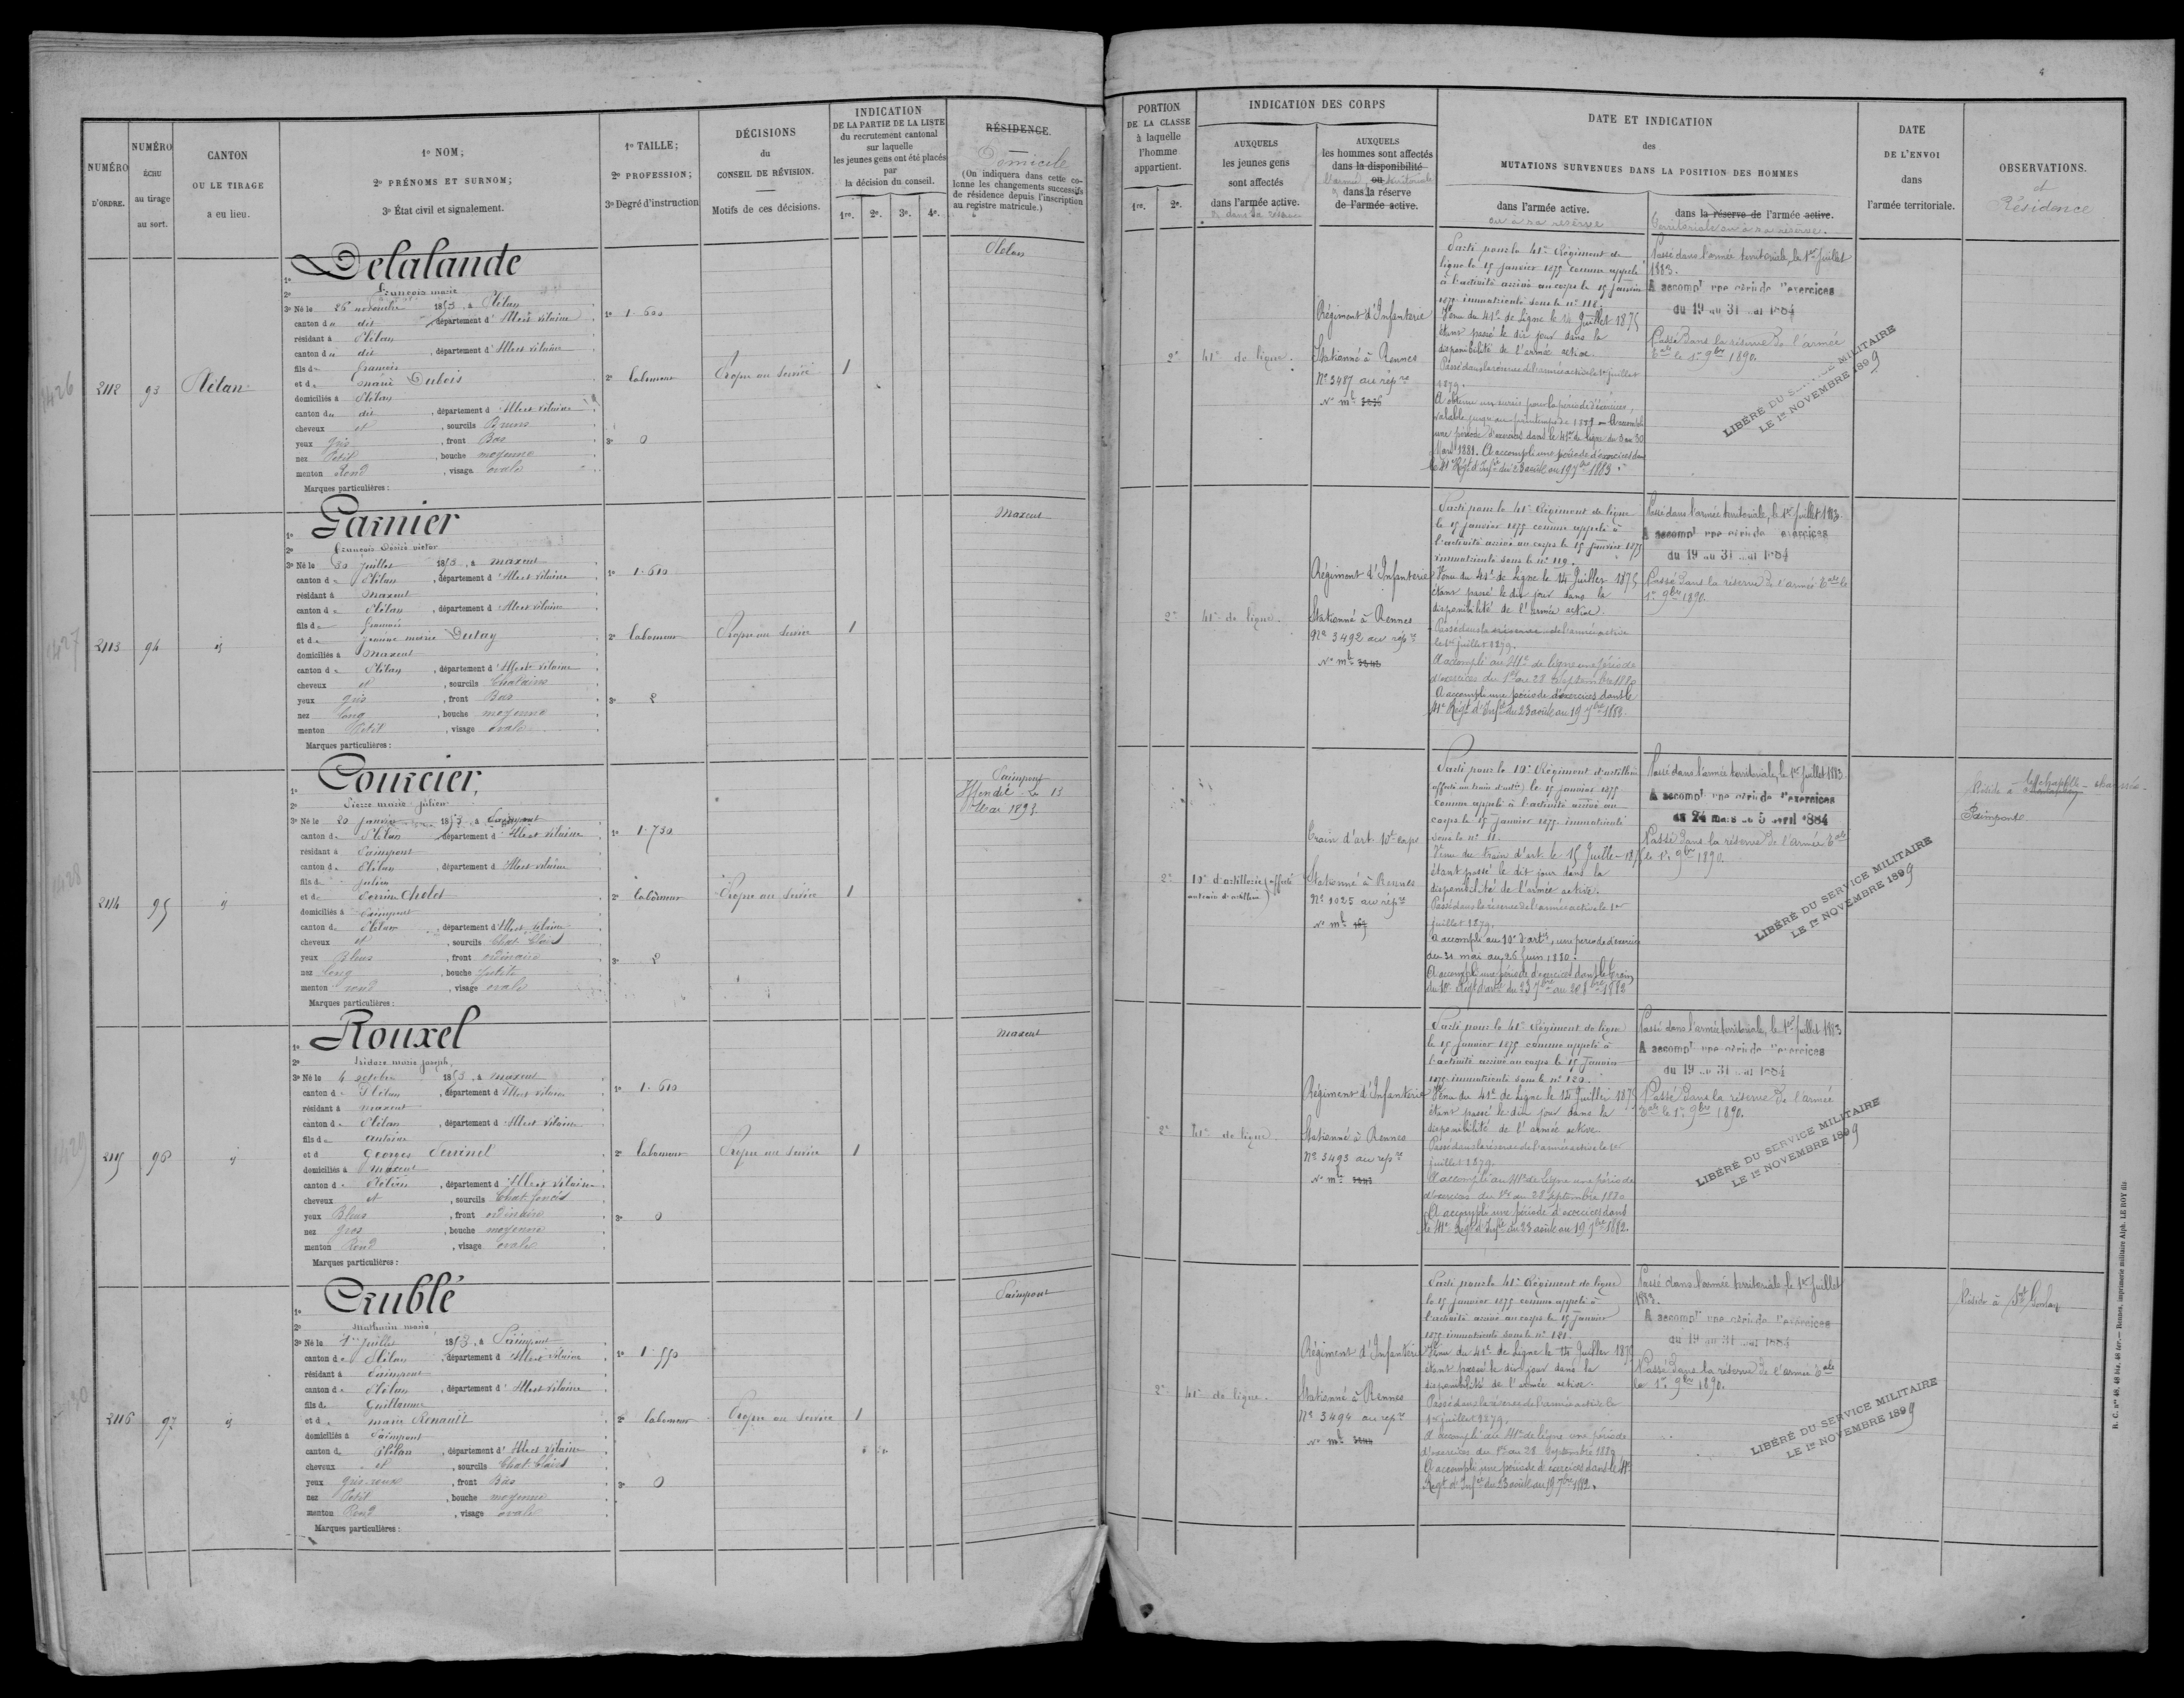 NUMÉRO
D'ORDRE.
NUMÉRO
ÉCHU
au tirage
au sort.
CANTON
OU LE TIRAGE
a eu lieu.
1o NOM;
2o PRÉNOMS ET SURNOM;
3o État civil et signalement.
1o TAILLE;
2o PROFESSION;
3o Dégré d'instruction
DÉCISIONS
du
CONSEIL DE RÉVISION.
Motifs de ces décisions.
INDICATION
DE LA PARTIE DE LA LISTE
du recrutement cantonal
sur laquelle
les jeunes gens ont été placés
par
la décision du conseil.
1re. 2e. 3e. 4e.
RÉSIDENCE.
Domicile
(On indiquera dans cette co-
lonne les changements successifs
de résidence depuis l'inscription
au registre matricule.)
PORTION
DE LA CLASSE
à laquelle
l'homme
appartient.
1re. 2e.
INDICATION DES CORPS
AUXQUELS
les jeunes gens
sont affectés
dans l'armée active.
AUXQUELS
les hommes sont affectés
dans la disponibilité
ou
dans la réserve
de l'armée active.
DATE ET INDICATION
des
MUTATIONS SURVENUES DANS LA POSITION DES HOMMES
dans l'armée active.
ou à sa réserve
dans la réserve de l'armée active.
territoriale ou à sa réserve.
DATE
DE L'ENVOI
dans
l'armée territoriale.
OBSERVATIONS.
et
Résidence
1426
2112
93
Plélan
1o Delalande
2o François marie
3o Né le 26 novembre 1853, à Plélan
canton du dit, département d'Ille et Vilaine
résidant à Plélan
canton du dit, département d'Ille et Vilaine
fils de François
et de marie Dubois
domiciliés à Plélan
canton du dit, département d'Ille et Vilaine
cheveux et, sourcils Bruns
yeux gris, front Bas
nez Petit, bouche moyenne
menton Rond, visage ovale
Marques particulières :
1o 1.600
2o laboureur
3o 0
Propre au service
1
Plélan
2e
41e de ligne.
Régiment d'Infanterie
Stationné à Rennes
No 3487 au rép re
No mle
Parti pour le 41e Régiment de
ligne le 15 janvier 1875 comme appelé
à l'activité arrivé au corps le 15 janvier
1875 immatriculé sous le no 118.
Venu du 41e de Ligne le 14 Juillet 1875
étant passé le dit jour dans la
disponibilité de l'armée active.
Passé dans la réserve de l'armée active le 1er juillet
1879.
A obtenu un sursis pour la période d'exercices,
une période d'exercices dans le 41e de ligne du 3 au 30
avril 1881. A accompli une période d'exercices dans
le 41e Régt d'Infie du 23 août au 19 7bre 1883.
Passé dans l'armée territoriale, le 1er Juillet
1883.
A accompt une période d'exercices
du 19 au 31 mai 1884
Passé dans la réserve de l'armée
tale le 1er 9bre 1890.
LIBÉRÉ DU SERVICE MILITAIRE
LE 1er NOVEMBRE 1899
1427
2113
94
id
1o Garnier
2o François Désiré victor
3o Né le 30 juillet 1853, à maxent
canton de Plélan, département d'Ille et Vilaine
résidant à maxent
canton de Plélan, département d'Ille et Vilaine
fils de François
et de Jeanne marie Dutay
domiciliés à maxent
canton de Plélan, département d'Ille et Vilaine
cheveux et, sourcils Chatains
yeux gris, front Bas
nez long, bouche moyenne
menton Petit, visage ovale
Marques particulières :
1o 1.610
2o laboureur
3o 2
Propre au service
1
Maxent
2e
41e de ligne.
Régiment d'Infanterie
Stationné à Rennes
No 3492 au rép re
No mle
Parti pour le 41e Régiment de ligne
le 15 janvier 1875 comme appelé à
l'activité arrivé au corps le 15 janvier 1875
immatriculé sous le no 119.
Venu du 41e de Ligne le 14 Juillet 1875
étant passé le dit jour dans la
disponibilité de l'armée active.
Passé dans la réserve de l'armée active
le 1er juillet 1879.
A accompli au 41e de ligne une période
d'exercices du 1er au 28 Septembre 1880
A accompli une période d'exercices dans le
41e Régt d'Infie du 23 août au 19 7bre 1883.
Passé dans l'armée territoriale, le 1er Juillet 1883.
A accompt une période d'exercices
du 19 au 31 mai 1884
Passé dans la réserve de l'armée tale le
1er 9bre 1890.
1428
2114
95
id
1o Courcier,
2o Pierre marie Julien
3o Né le 20 janvier 1853, à Paimpont
canton de Plélan, département d'Ille et Vilaine
résidant à Paimpont
canton de Plélan, département d'Ille et Vilaine
fils de Julien
et de Perrine Cholet
domiciliés à Paimpont
canton de Plélan, département d'Ille et Vilaine
cheveux et, sourcils Chat. Clairs
yeux Bleus, front ordinaire
nez long, bouche petite
menton rond, visage ovale
Marques particulières :
1o 1.730
2o laboureur
3o 2
Propre au service
1
Paimpont
Iffendic le 13
Mai 1893
2e
10e d'artillerie (affecté
au train d'artillerie)
Train d'art. 10e corps
Stationné à Rennes
No 1025 au rép re
No mle
Parti pour le 10e Régiment d'artillerie
affecté au train d'artie) le 15 janvier 1875
comme appelé à l'activité arrivé au
corps le 15 janvier 1875 immatriculé
sous le no 11.
Venu du train d'art. le 15 Juillet 1875
étant passé le dit jour dans la
disponibilité de l'armée active.
Passé dans la réserve de l'armée active le 1er
juillet 1879.
A accompli au 10e d'artie, une période d'exercices
du 31 mai au 26 Juin 1880.
A accompli une période d'exercices dans le train
du 10e Régt d'artie du 23 7bre au 20 8bre 1882
Passé dans l'armée territoriale, le 1er Juillet 1883.
A accompt une période d'exercices
du 24 mars au 5 avril 1884
Passé dans la réserve de l'armée tale
le 1er 9bre 1890.
LIBÉRÉ DU SERVICE MILITAIRE
LE 1er NOVEMBRE 1899
Réside à
Paimpont
1429
2115
96
id
1o Rouxel
2o Isidore marie joseph,
3o Né le 4 octobre 1853, à maxent
canton de Plélan, département d'Ille et Vilaine
résidant à maxent
canton de Plélan, département d'Ille et Vilaine
fils de antoine
et de Georges Perrinel
domiciliés à maxent
canton de Plélan, département d'Ille et Vilaine
cheveux et, sourcils Chat. foncés
yeux Bleus, front ordinaire
nez gros, bouche moyenne
menton Rond, visage ovale
Marques particulières :
1o 1.610
2o laboureur
3o 0
Propre au service
1
Maxent
2e
41e de ligne.
Régiment d'Infanterie
Stationné à Rennes
No 3493 au rép re
No mle
Parti pour le 41e Régiment de ligne
le 15 janvier 1875 comme appelé à
l'activité arrivé au corps le 15 janvier
1875 immatriculé sous le no 120.
Venu du 41e de Ligne le 14 Juillet 1875
étant passé le dit jour dans la
disponibilité de l'armée active.
Passé dans la réserve de l'armée active le 1er
juillet 1879.
A accompli au 41e de ligne une période
d'exercices du 1er au 28 Septembre 1880
A accompli une période d'exercices dans
le 41e Régt d'Infie du 23 août au 19 7bre 1882.
Passé dans l'armée territoriale, le 1er Juillet 1883
A accompt une période d'exercices
du 19 au 31 mai 1884
Passé dans la réserve de l'armée
tale le 1er 9bre 1890.
LIBÉRÉ DU SERVICE MILITAIRE
LE 1er NOVEMBRE 1899
2116
97
id
1o Crublé
2o Mathurin marie
3o Né le 1er juillet 1853, à Paimpont
canton de Plélan, département d'Ille et Vilaine
résidant à Paimpont
canton de Plélan, département d'Ille et Vilaine
fils de Guillaume
et de marie Renault
domiciliés à Paimpont
canton de Plélan, département d'Ille et Vilaine
cheveux et, sourcils Chat. Clairs
yeux gris-roux, front Bas
nez Petit, bouche moyenne
menton Rond, visage ovale
Marques particulières :
1o 1.550
2o laboureur
3o 0
Propre au service
1
Paimpont
2e
41e de ligne.
Régiment d'Infanterie
Stationné à Rennes
No 3494 au rép re
No mle
Parti pour le 41e Régiment de ligne
le 15 janvier 1875 comme appelé à
l'activité arrivé au corps le 15 janvier
1875 immatriculé sous le no 121.
Venu du 41e de Ligne le 14 Juillet 1875
étant passé le dit jour dans la
disponibilité de l'armée active.
Passé dans la réserve de l'armée active le
1er juillet 1879.
A accompli au 41e de ligne une période
d'exercices du 1er au 28 Septembre 1880
A accompli une période d'exercices dans le 41e
Régt d'Infie du 23 août au 19 7bre 1882.
Passé dans l'armée territoriale, le 1er Juillet
1883.
A accompt une période d'exercices
du 19 au 31 mai 1884
Passé dans la réserve de l'armée tale
le 1er 9bre 1890.
LIBÉRÉ DU SERVICE MILITAIRE
LE 1er NOVEMBRE 1899
Réside à St
R. C. nos 48, 48 bis, 48 ter.— Rennes, imprimerie militaire Alph. LE ROY fils